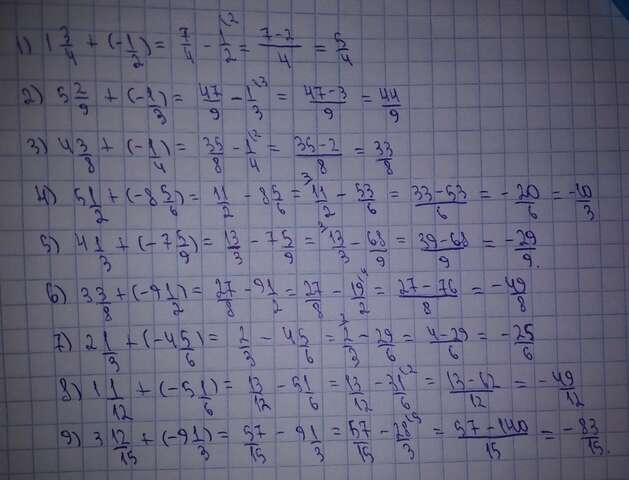 1) 1 3/4 + (-1/2) = 7/4 - 1/2 \2 = 7-2/4 = 5/4
2) 5 2/9 + (-1/3) = 47/9 - 1/3 \3 = 47-3/9 = 44/9
3) 4 3/8 + (-1/4) = 35/8 - 1/4 \2 = 35-2/8 = 33/8
4) 5 1/2 + (-8 5/6) = 11/2 - 8 5/6 = 3/ 11/2 - 53/6 = 33-53/6 = -20/6 = -10/3
5) 4 1/3 + (-7 5/9) = 13/3 - 7 5/9 = 3/ 13/3 - 68/9 = 39-68/9 = -29/9.
6) 3 3/8 + (-9 1/2) = 27/8 - 9 1/2 = 27/8 - 19/2 \4 = 27-76/8 = -49/8
7) 2 1/3 + (-4 5/6) = 2/3 - 4 5/6 = 2/ 2/3 - 29/6 = 4-29/6 = -25/6
8) 1 1/12 + (-5 1/6) = 13/12 - 5 1/6 = 13/12 - 31/6 \2 = 13-62/12 = -49/12
9) 3 12/15 + (-9 1/3) = 57/15 - 9 1/3 = 57/15 - 28/3 \5 = 57-140/15 = -83/15.